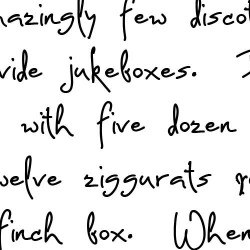 mazingly few discot
vide jukeboxes.
with five dozen
welve ziggurats qu
finch box. When